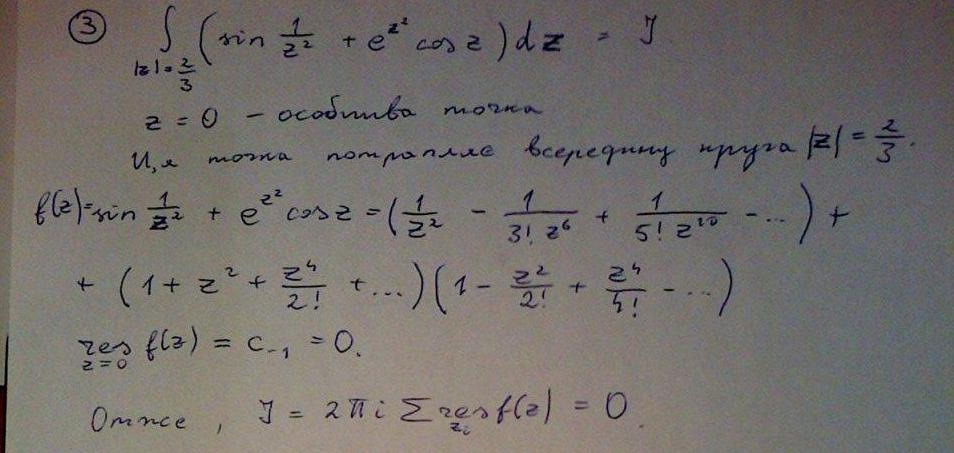 ③ ∫ (sin 1/z² + e^z² cos z) dz = J
|z|=2/3
z = 0 – особлива точка
Ця точка потрапляє всередину круга |z| = 2/3.
f(z)=sin 1/z² + e^z² cos z = (1/z² - 1/(3! z⁶) + 1/(5! z¹⁰) - ...) +
+ (1 + z² + z⁴/2! + ...)(1 - z²/2! + z⁴/4! - ...)
res f(z) = c₋₁ = 0.
z=0
Отже, J = 2πi ∑ res f(z) = 0.
zᵢ